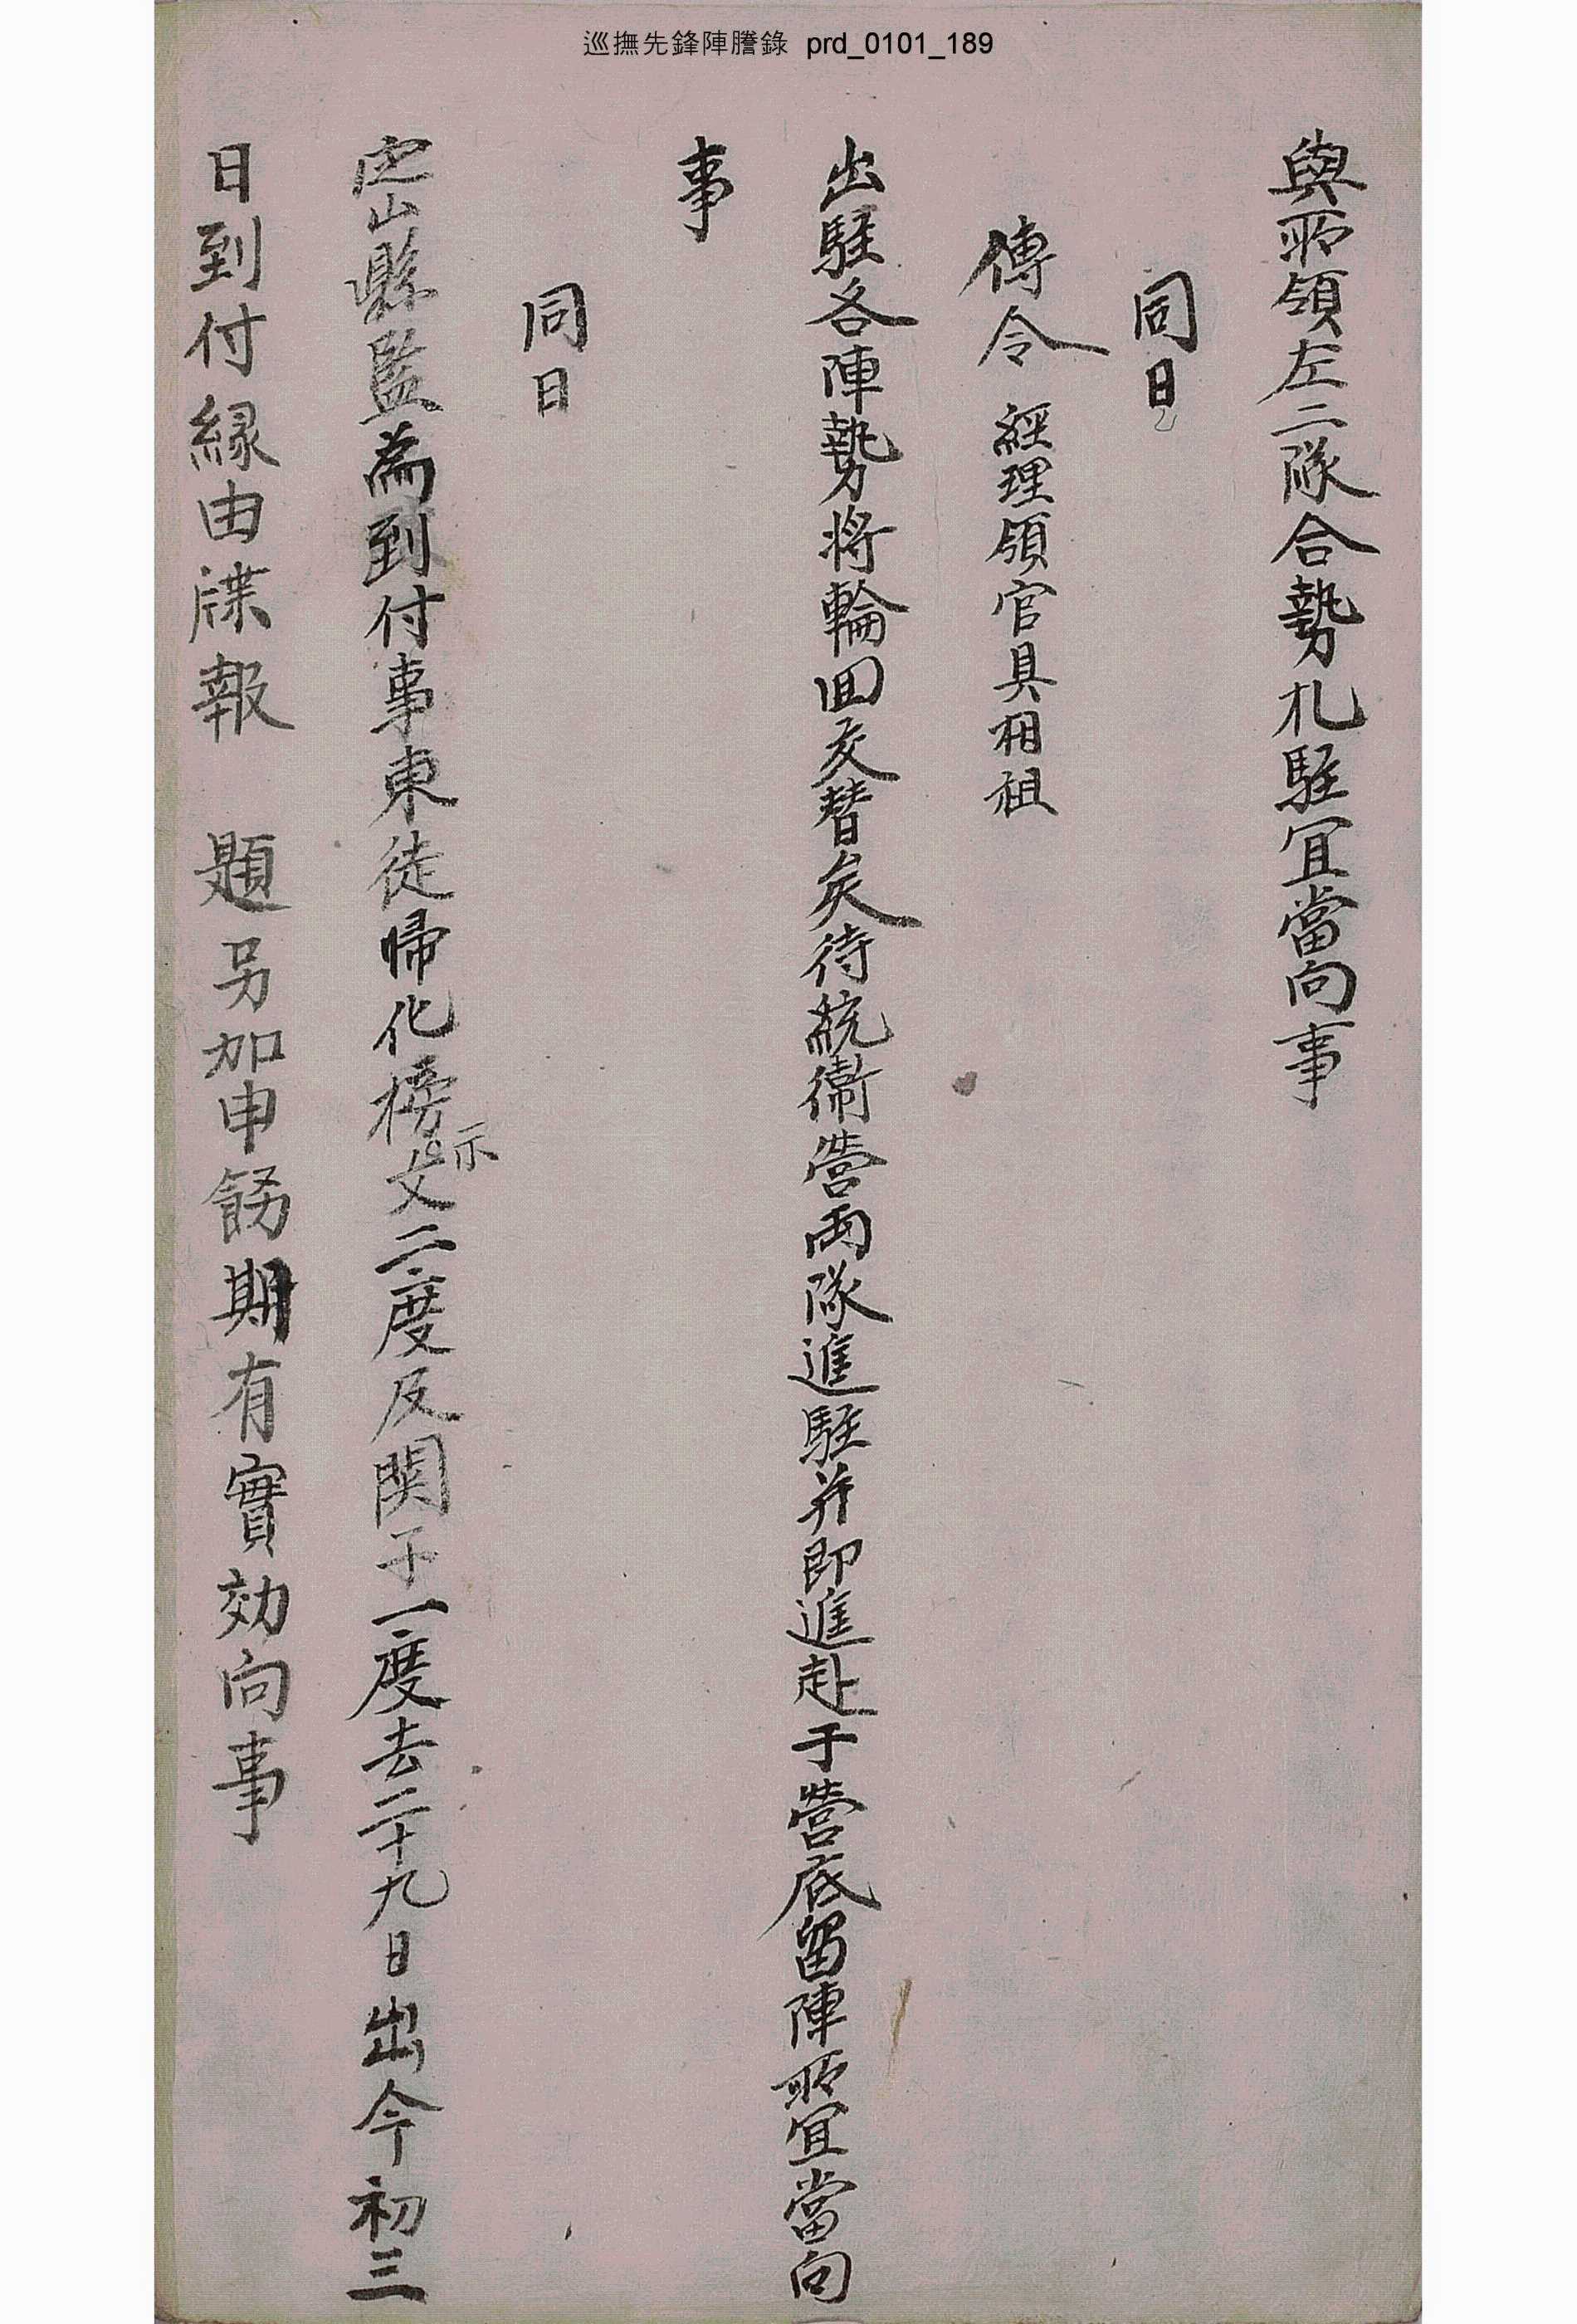 巡撫先鋒陣謄錄 prd_0101_189
與所領左二隊合勢札駐宜當向事
同日
傳令 經理領官具相祖
出駐各陣勢將輪回交替矣待統衛營兩隊進駐并即進赴于營底留陣所宜當向
事
同日
定山縣監為到付事東徒歸化榜示文二度及関子一度去二十九日出今初三
日到付緣由牒報 題另加申飭期有實効向事